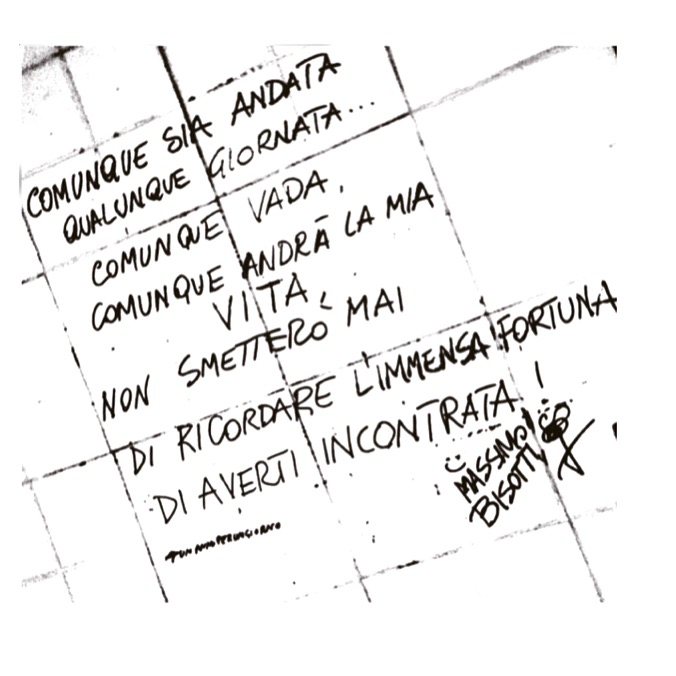 COMUNQUE SIA ANDATA
QUALUNQUE GIORNATA...
COMUNQUE VADA,
COMUNQUE ANDRÀ LA MIA
VITA,
NON SMETTERÒ MAI
DI RICORDARE L'IMMENSA FORTUNA
DI AVERTI INCONTRATA!
MASSIMO
BISOTTI
#UNANNOPERUNGIORNO